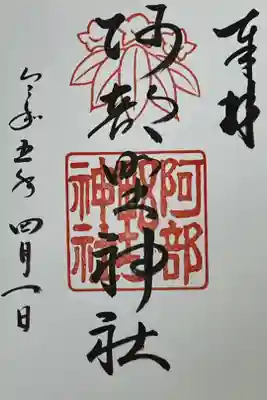 奉拝
阿部野神社
阿部
野神社
令和五年四月一日